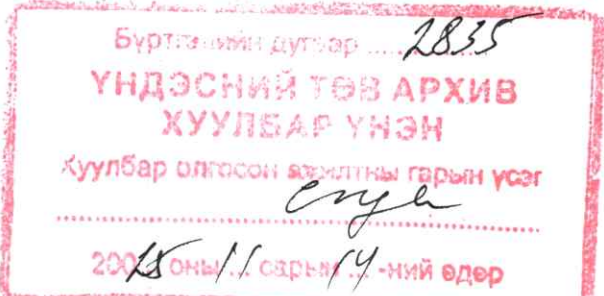 Бүртгэлийн дугаар ........ 2835
ҮНДЭСНИЙ ТӨВ АРХИВ
ХУУЛБАР ҮНЭН
Хуулбар олгосон ажилтны гарын үсэг
оны 11 сарын 14 -ний өдөр